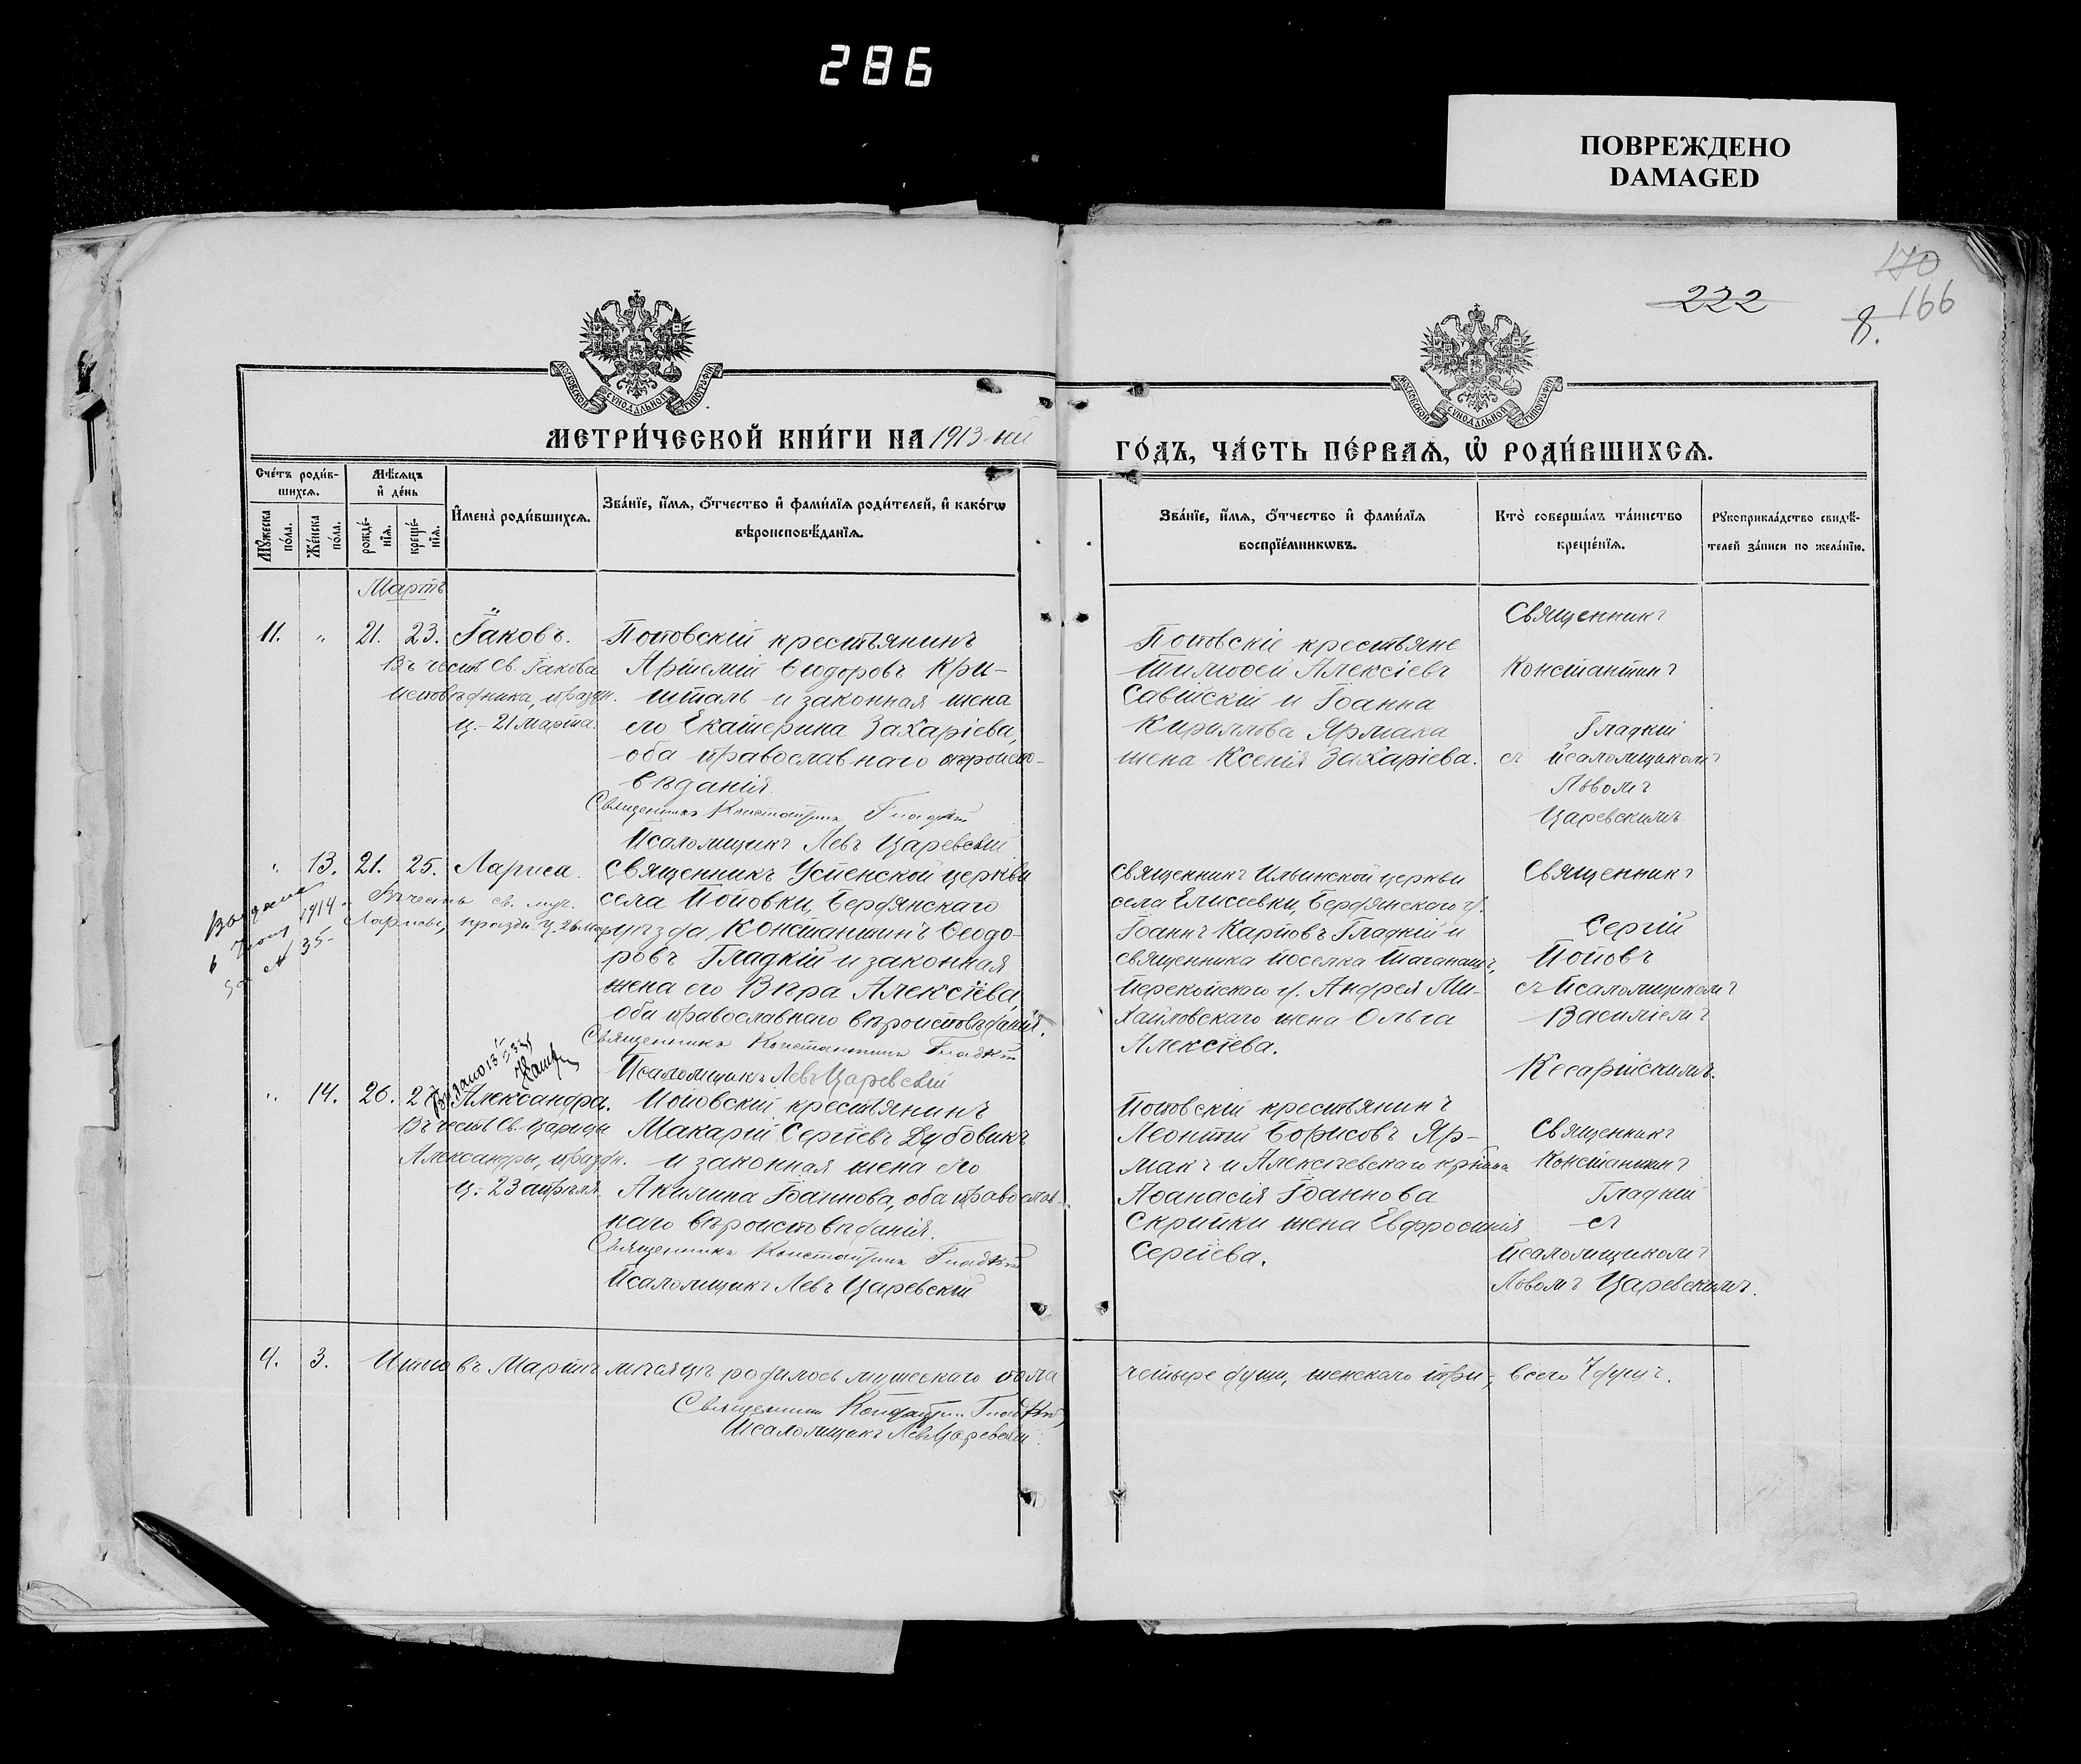 286
ПОВРЕЖДЕНО
DAMAGED
170
222
166
8.
МОСКОВСКОЙ СѴНОДАЛЬНОЙ ТИПОГРАФІИ
МОСКОВСКОЙ СѴНОДАЛЬНОЙ ТИПОГРАФІИ
МЕТРИ́ЧЕСКОЙ КНИ́ГИ НА 1913-ый
ГО́ДЪ, ЧА́СТЬ ПЕ́РВАѦ, Ѽ РОДИ́ВШИХСѦ.
Сче́тъ роди́в-
шихсѧ.
Мѣ́сѧцъ
и҆ де́нь
Мꙋ́жеска по́ла.
Же́нска по́ла.
рожде́-
нїѧ.
креще́-
нїѧ.
И҆мена̀ роди́вшихсѧ.
Зва́нїе, и҆́мѧ, ѻ҆́тчество и҆ фами́лїѧ роди́телей, и҆ како́гѡ
вѣроисповѣ́данїѧ.
Зва́нїе, и҆́мѧ, ѻ҆́тчество и҆ фами́лїѧ
воспрїе́мникѡвъ.
Кто̀ соверша́лъ та́инство
креще́нїѧ.
Рꙋкоприкла́дство свидѣ́-
телей за́писи по жела́нїю.
Мартъ
11. " 21. 23. Іаковъ.
Въ честь Св. Іакова
исповѣдника, праздн.
ц. 21 марта.
Поповскій крестьянинъ
Артемій Ѳеодоровъ Кри-
шталь и законная жена
его Екатерина Захаріева,
оба православнаго вѣроиспо-
вѣданія.
Священникъ Константинъ Гладкій
Псаломщикъ Левъ Царевскій
Поповскіе крестьяне
Тимоѳей Алексіевъ
Савійскій и Іоанна
Кириллова Ярмака
жена Ксенія Захаріева.
Священникъ
Константинъ
Гладкій
съ псаломщикомъ
Львомъ
Царевскимъ.
" 13. 21. 25. Лариса.
Въ честь св. муч.
Ларисы, праздн. ц. 26 мар.
1914
№ 35
Священникъ Успенской церкви
села Поповки, Бердянскаго
уѣзда Константинъ Ѳеодо-
ровъ Гладкій и законная
жена его Вѣра Алексіева,
оба православнаго вѣроисповѣданія.
Священникъ Константинъ Гладкій
Псаломщикъ Левъ Царевскій
Священникъ Ильинской церкви
села Елисеевки, Бердянскаго у.
Іоаннъ Карповъ Гладкій и
священника поселка Таганашъ,
Перекопскаго у. Андрея Ми-
хайловскаго жена Ольга
Алексіева.
Священникъ
Сергій
Поповъ
съ псаломщикомъ
Василіемъ
Кесарійскимъ.
" 14. 26. 27. Александра.
Въ честь Св. Царицы
Александры, праздн.
ц. 23 апрѣля.
Поповскій крестьянинъ
Макарій Сергіевъ Дубовикъ
и законная жена его
Акилина Іоаннова, оба православ-
наго вѣроисповѣданія.
Священникъ Константинъ Гладкій
Псаломщикъ Левъ Царевскій
Поповскій крестьянинъ
Леонтій Борисовъ Яр-
макъ и Алексѣевскаго кр-нина
Аѳанасія Іоаннова
Скрипки жена Евфросинія
Сергіева.
Священникъ
Константинъ
Гладкій
съ
псаломщикомъ
Львомъ Царевскимъ.
4. 3. Итого въ Мартѣ мѣсяцѣ родилось мужескаго пола
четыре души, женскаго три, всего 7 душъ.
Священникъ Константинъ Гладкій
Псаломщикъ Левъ Царевскій